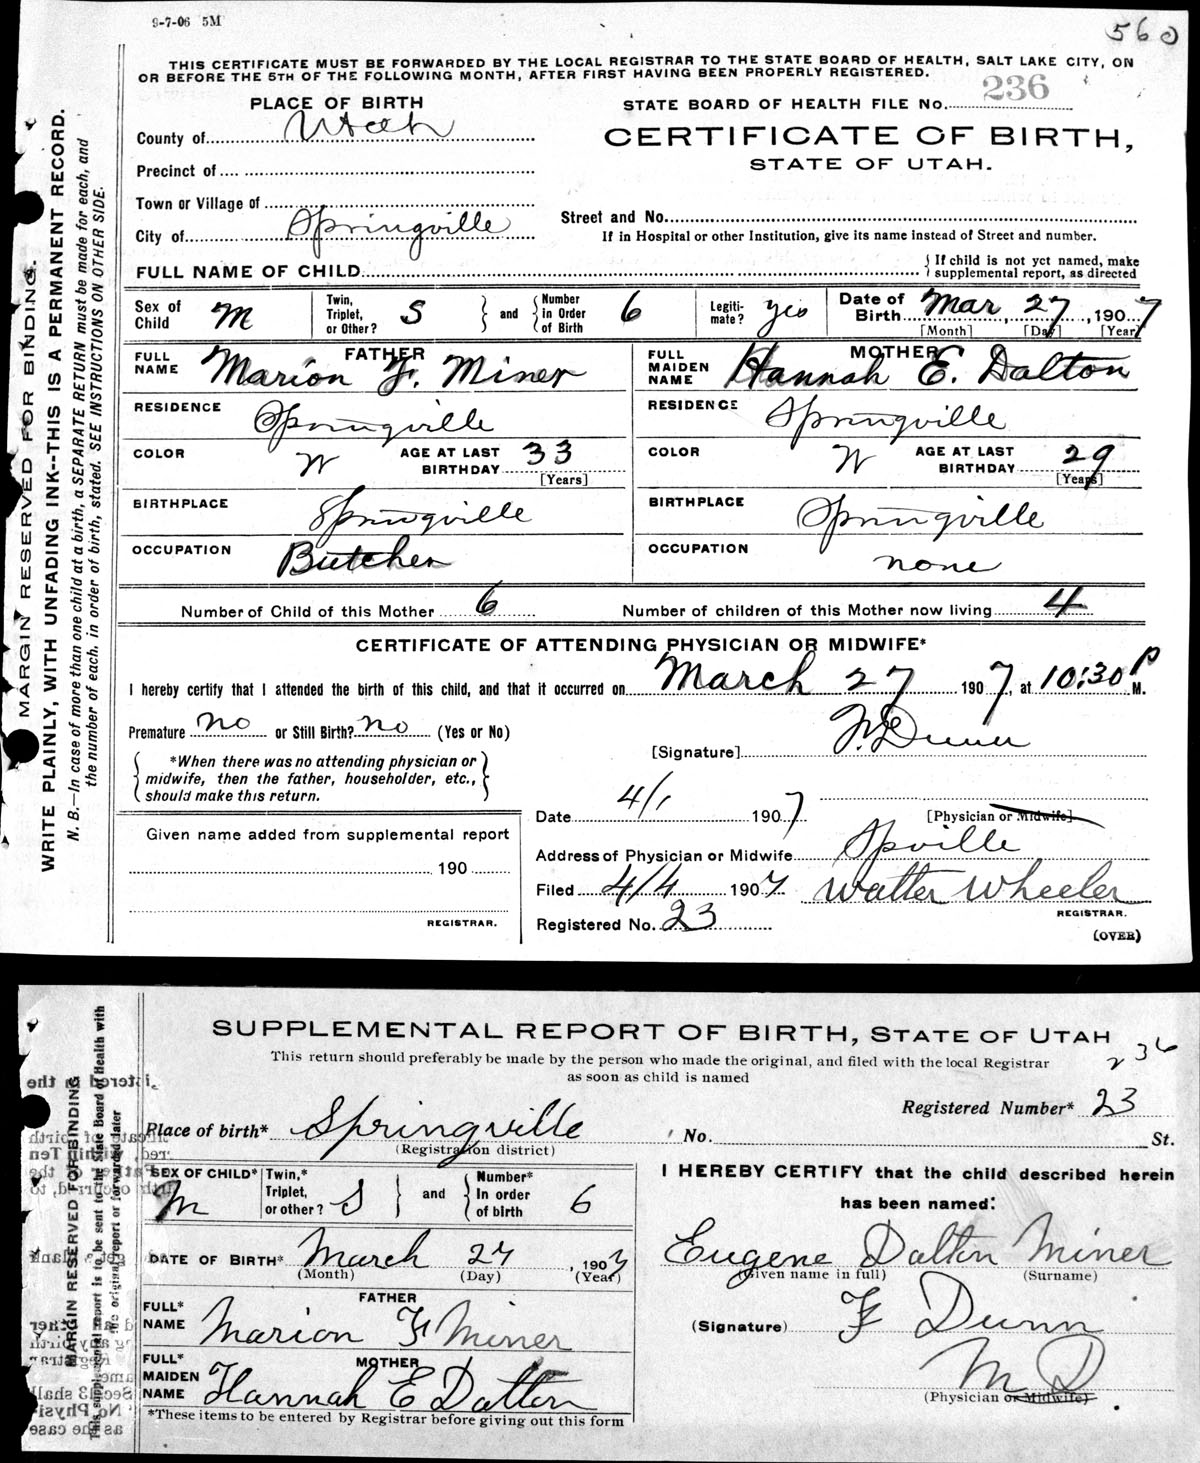 9-7-06 5M
560
THIS CERTIFICATE MUST BE FORWARDED BY THE LOCAL REGISTRAR TO THE STATE BOARD OF HEALTH, SALT LAKE CITY, ON
OR BEFORE THE 5TH OF THE FOLLOWING MONTH, AFTER FIRST HAVING BEEN PROPERLY REGISTERED.
PLACE OF BIRTH
STATE BOARD OF HEALTH FILE No. 236
County of Utah
CERTIFICATE OF BIRTH,
STATE OF UTAH.
Precinct of
Town or Village of
City of Springville
Street and No.
If in Hospital or other Institution, give its name instead of Street and number.
FULL NAME OF CHILD
If child is not yet named, make
supplemental report, as directed
Sex of Child M
Twin, Triplet, or Other? S and Number in Order of Birth 6
Legiti-mate? yes
Date of Birth Mar 27, 1907
[Month] [Day] [Year]
FATHER
FULL NAME Marion F. Miner
MOTHER
FULL MAIDEN NAME Hannah E. Dalton
RESIDENCE Springville
RESIDENCE Springville
COLOR W AGE AT LAST BIRTHDAY 33 [Years]
COLOR W AGE AT LAST BIRTHDAY 29 [Years]
BIRTHPLACE Springville
BIRTHPLACE Springville
OCCUPATION Butcher
OCCUPATION none
Number of Child of this Mother 6
Number of children of this Mother now living 4
CERTIFICATE OF ATTENDING PHYSICIAN OR MIDWIFE*
I hereby certify that I attended the birth of this child, and that it occurred on March 27 1907, at 10:30 P M.
Premature no or Still Birth? no (Yes or No)
[Signature] F. Dunn
*When there was no attending physician or
midwife, then the father, householder, etc.,
should make this return.
Date 4/1 1907
[Physician or Midwife]
Given name added from supplemental report
190
REGISTRAR.
Address of Physician or Midwife Spville
Filed 4/4 1907 Walter Wheeler
REGISTRAR.
Registered No. 23
(OVER)
MARGIN RESERVED FOR BINDING.
WRITE PLAINLY, WITH UNFADING INK--THIS IS A PERMANENT RECORD.
N. B.—In case of more than one child at a birth, a SEPARATE RETURN must be made for each, and
the number of each, in order of birth, stated. SEE INSTRUCTIONS ON OTHER SIDE.
SUPPLEMENTAL REPORT OF BIRTH, STATE OF UTAH
This return should preferably be made by the person who made the original, and filed with the local Registrar
as soon as child is named
236
Registered Number* 23
Place of birth* Springville
(Registration district)
No. St.
SEX OF CHILD* M
Twin,* Triplet, or other? S and Number* In order of birth 6
I HEREBY CERTIFY that the child described herein
has been named:
DATE OF BIRTH* March 27, 1907
(Month) (Day) (Year)
Eugene Dalton Miner
(Given name in full) (Surname)
FATHER
FULL* NAME Marion F Miner
(Signature) F Dunn
M D
(Physician or Midwife)
MOTHER
FULL* MAIDEN NAME Hannah E Dalton
*These items to be entered by Registrar before giving out this form
MARGIN RESERVED FOR BINDING
This supplemental report is to be sent to the State Board of Health with
the original report or forwarded later